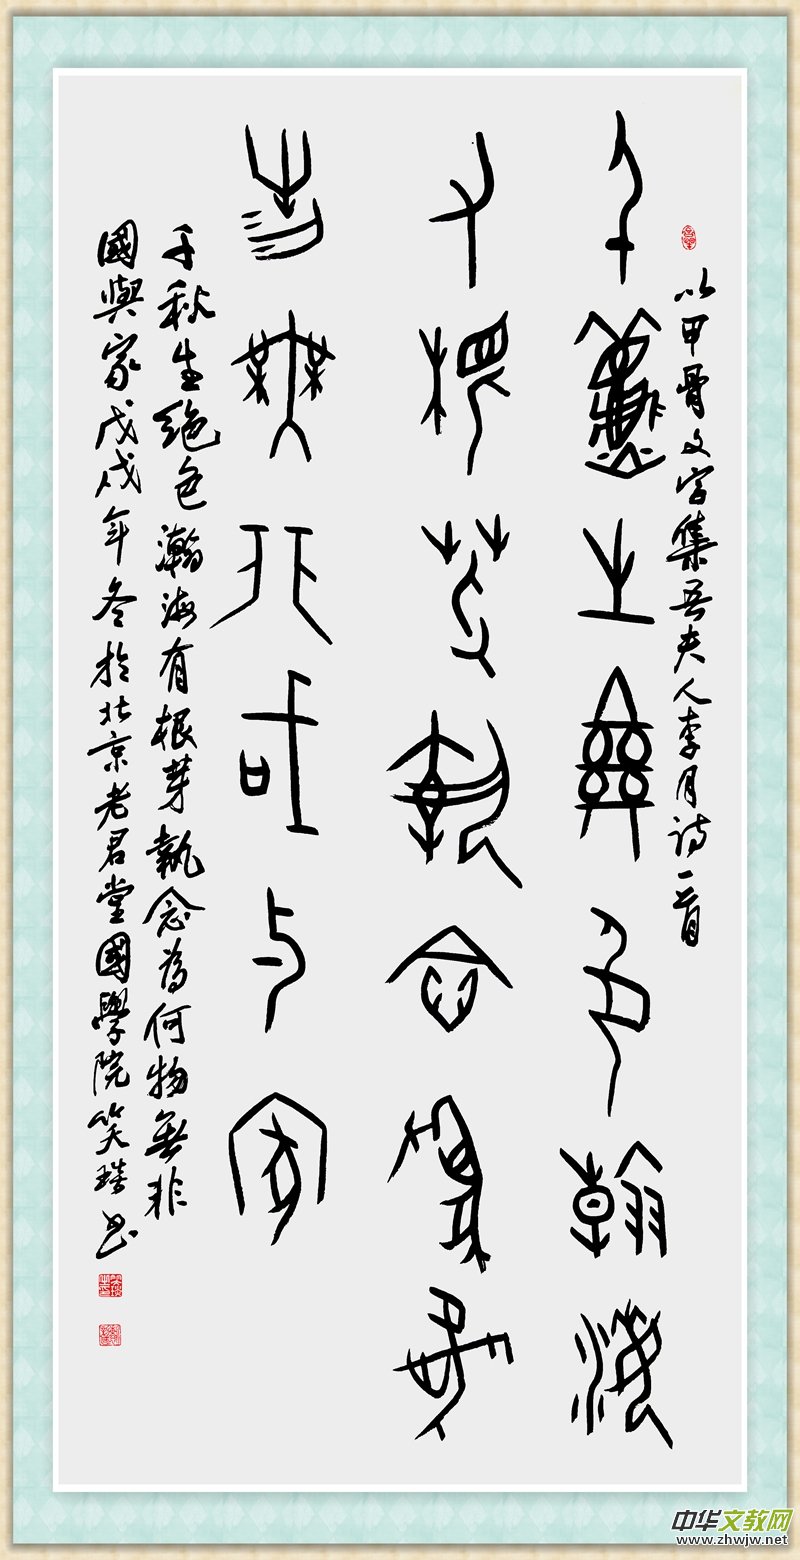 以甲骨文字集吾夫人李月诗一首
千秋生絕色瀚海
有根芽執念為何
物無非國與家
千秋生绝色瀚海有根芽執念為何物無非
國與家戊戌年冬於北京老君堂國學院笑书
中华文教网
www.zhwjw.net